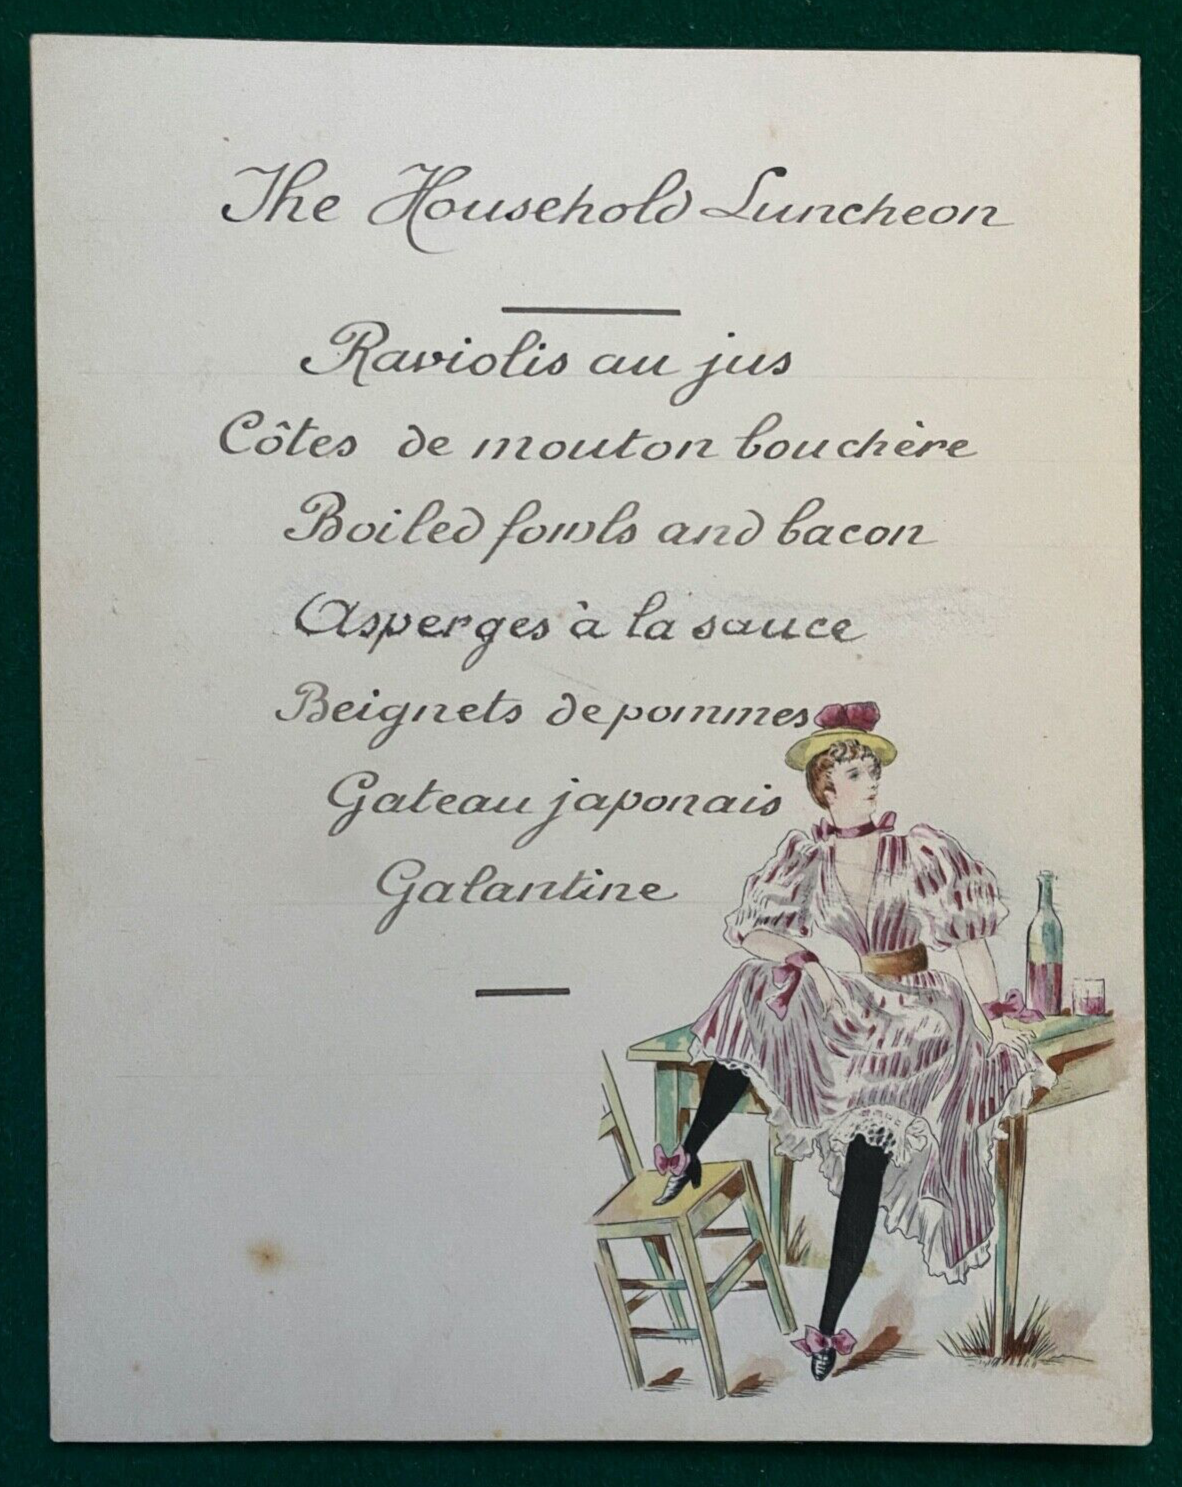 The Household Luncheon
Raviolis au jus
Côtes de mouton bouchère
Boiled fowls and bacon
Asperges à la sauce
Beignets de pommes
Gateau japonais
Galantine